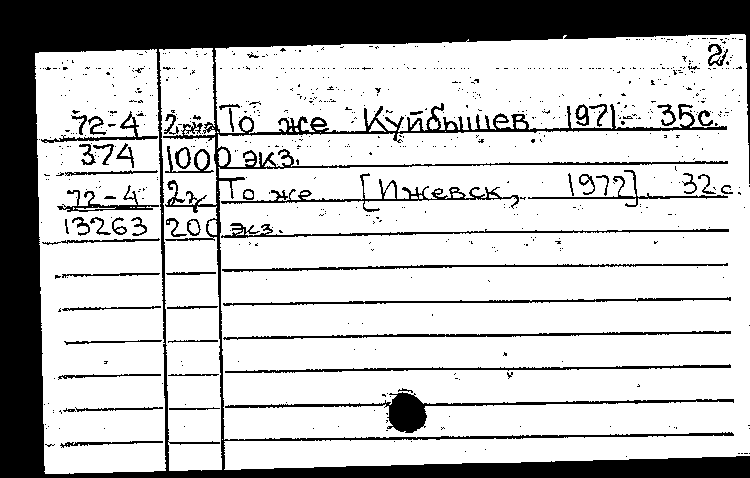 2
72-4 То же Куйбышев 1971. 35с.
374 1000 экз.
72-4 2 То же [Ижевск, 1972]. 32с.
13263 200 экз.